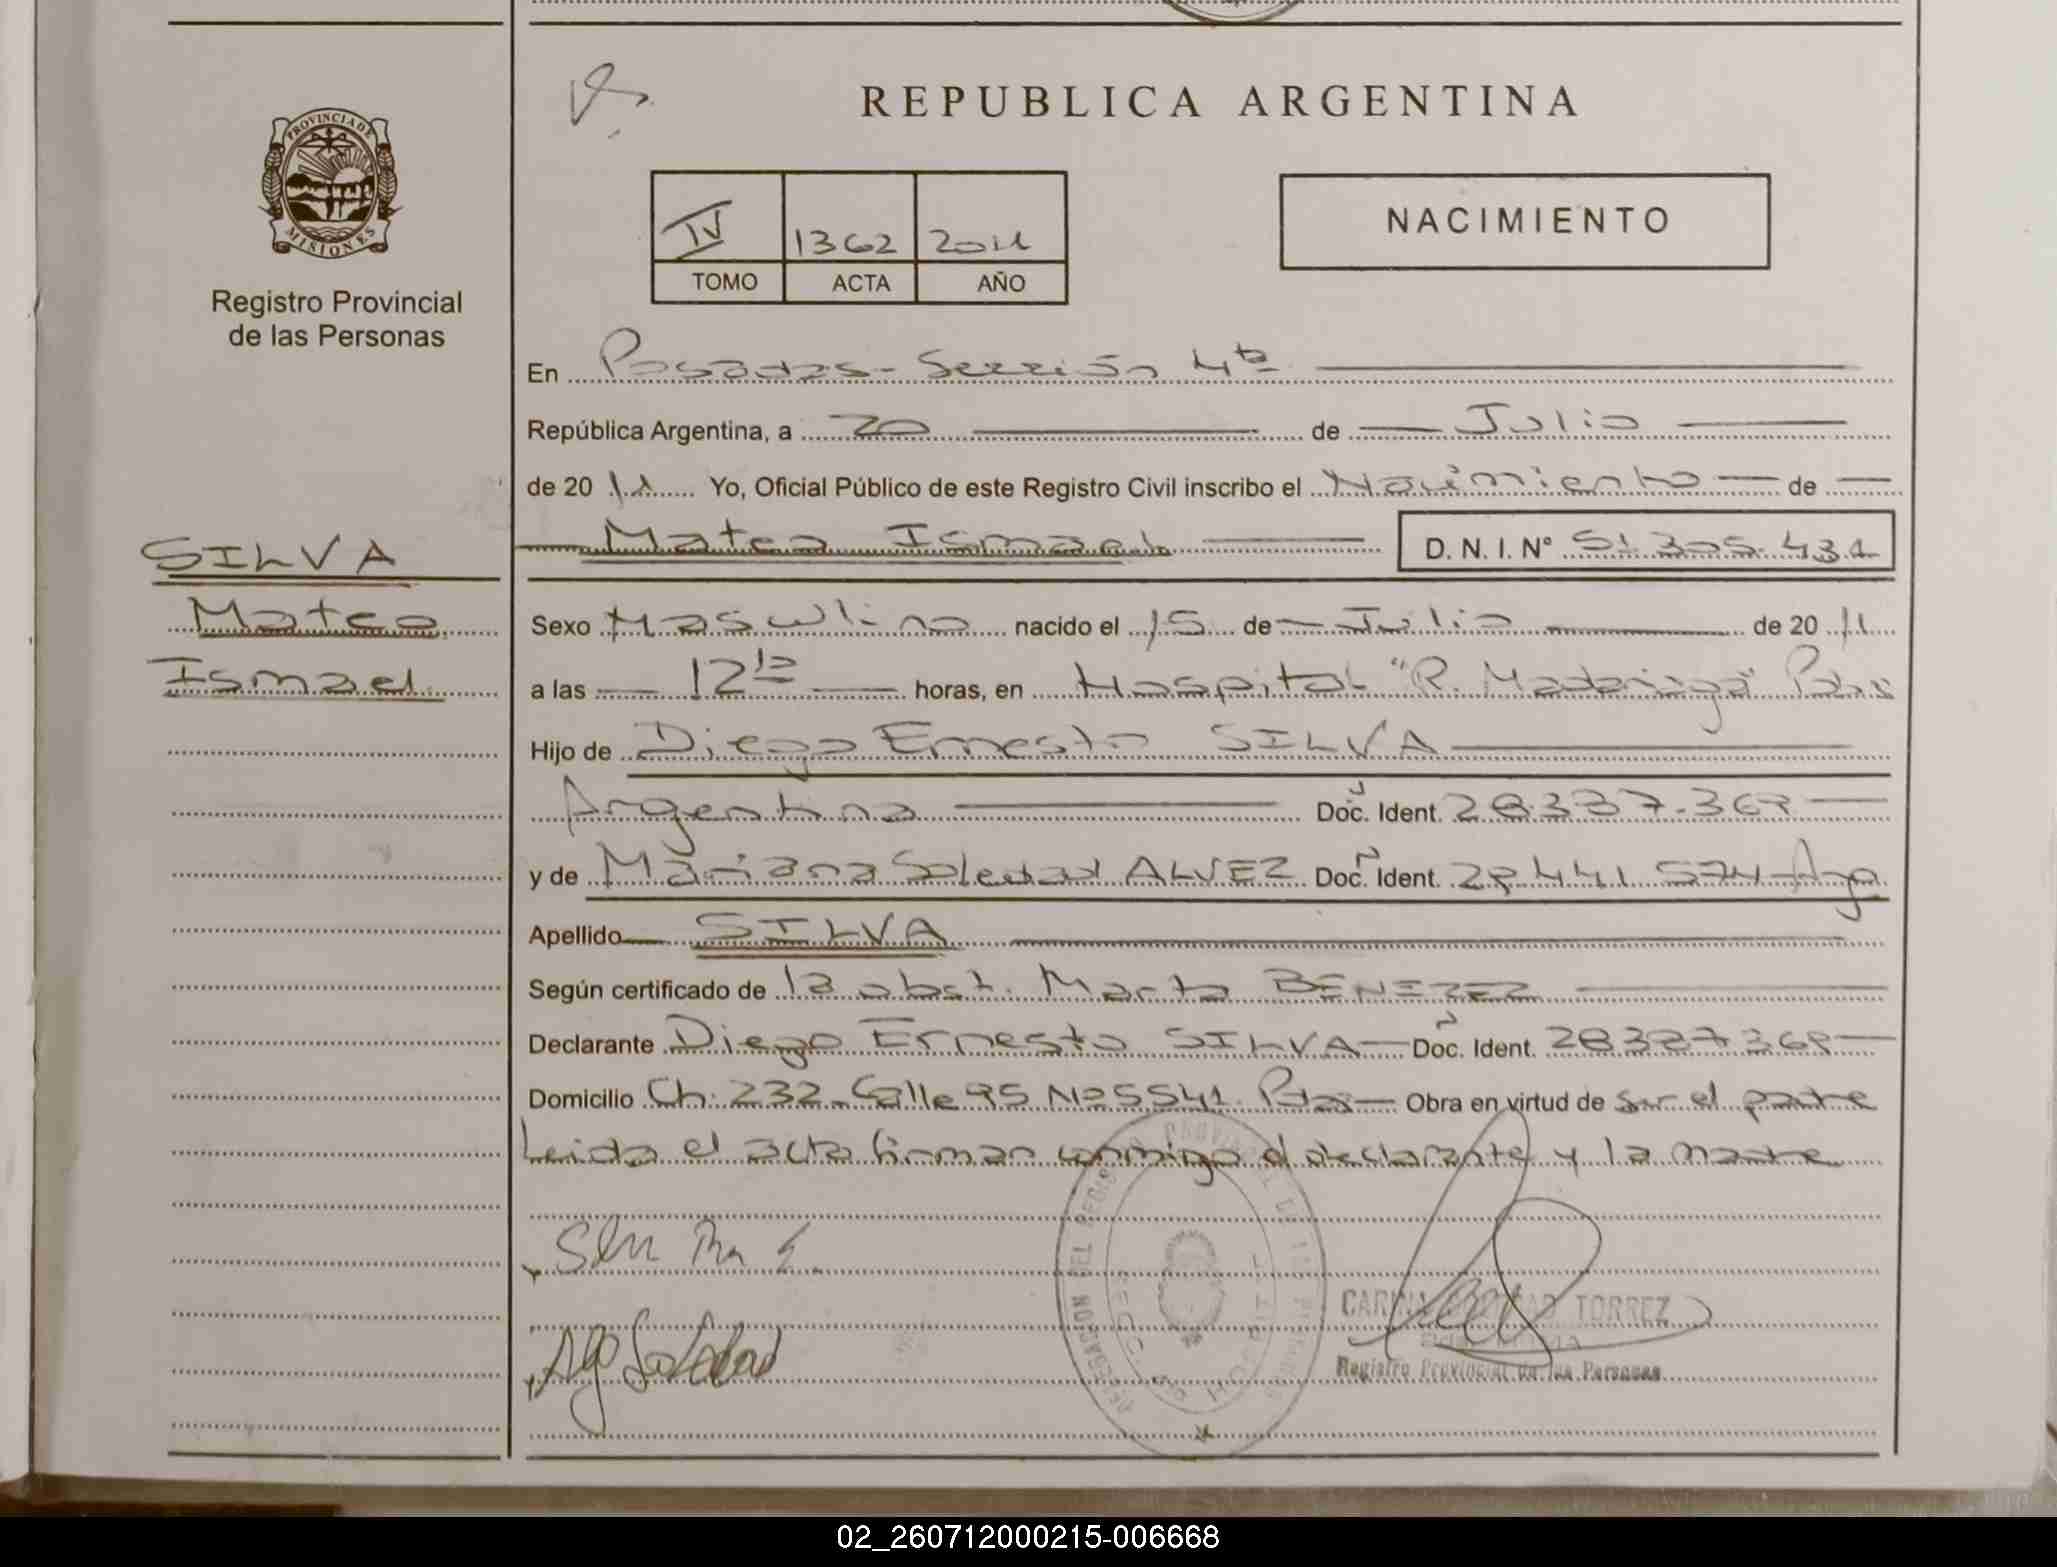 PROVINCIA DE
MISIONES
Registro Provincial
de las Personas
SILVA
Mateo
Ismael
REPUBLICA ARGENTINA
IV 1362 2011
TOMO ACTA AÑO
NACIMIENTO
En Posadas - Sección 4ta
República Argentina, a 20 de Julio
de 2011 Yo, Oficial Público de este Registro Civil inscribo el Nacimiento de
Mateo Ismael D. N. I. N° 51.305.431
Sexo Masculino nacido el 15 de Julio de 2011
a las 12 horas, en Hospital "R. Madariaga"
Hijo de Diego Ernesto SILVA
Argentina Doc. Ident.
y de Mariana Soledad ALVEZ Doc. Ident.
Apellido SILVA
Según certificado de la obst. Marta BENEZEZ
Declarante Diego Ernesto SILVA Doc. Ident.
Domicilio Ch. 232 Calle 95 Nº 5541 Pdas Obra en virtud de ser el padre
Leida el acta firman conmigo el declarante y la madre
Soledad
TORREZ
Registro Provincial de las Personas
02_260712000215-006668